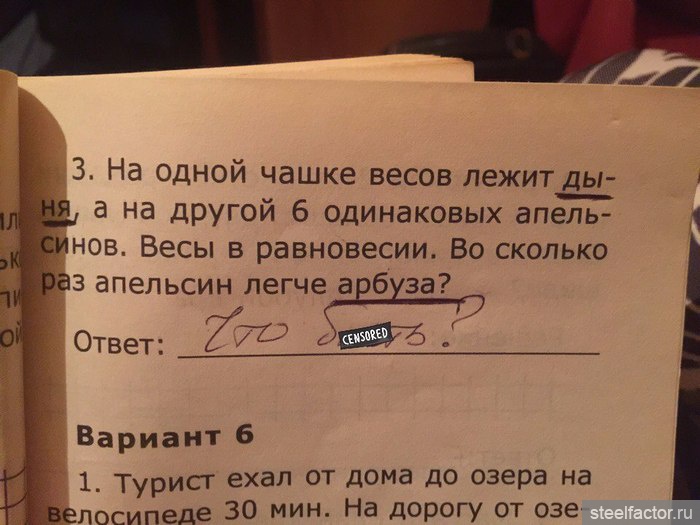 3. На одной чашке весов лежит ды-
ня, а на другой 6 одинаковых апель-
синов. Весы в равновесии. Во сколько
раз апельсин легче арбуза?
Ответ: Что б CENSORED ть?
Вариант 6
1. Турист ехал от дома до озера на
велосипеде 30 мин. На дорогу от озе-
steelfactor.ru